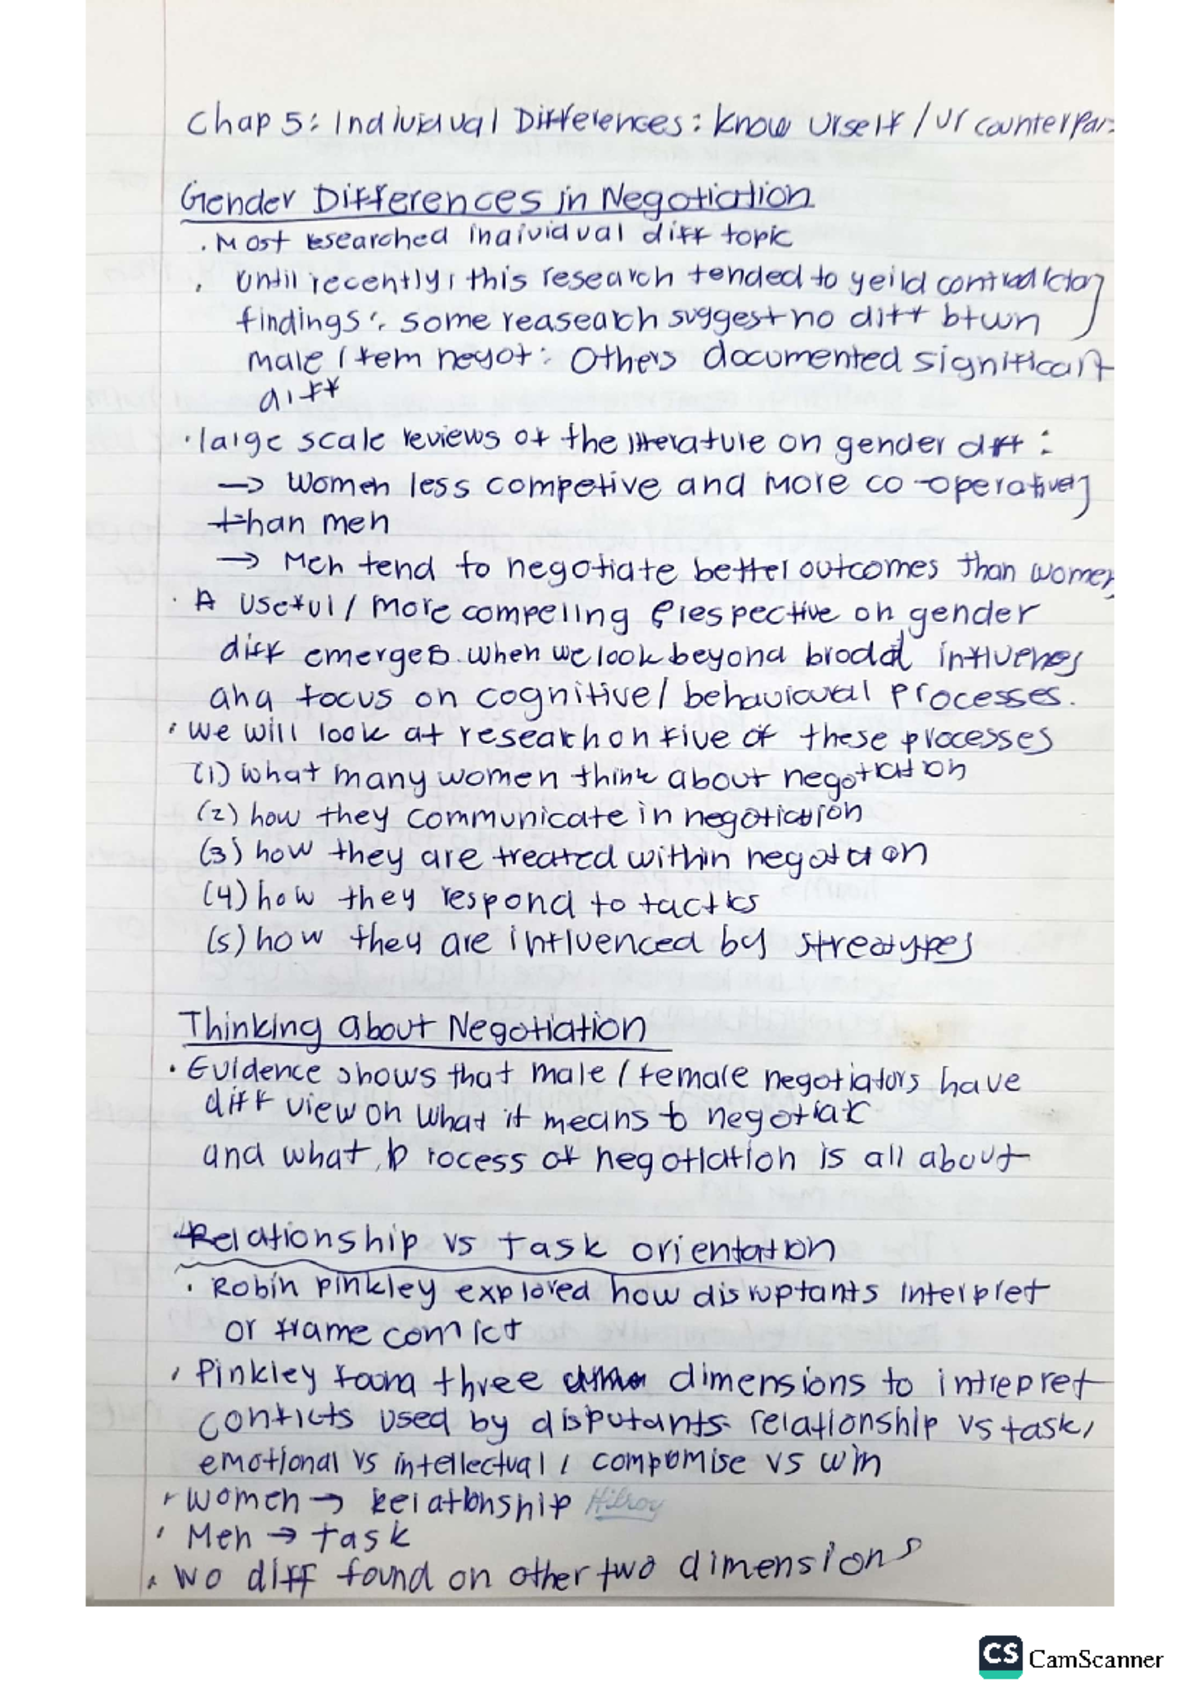 Chap 5: Individual Differences: Know urself / ur counterpar
Gender Differences in Negotiation
. Most researched individual diff topic
. Until recently, this research tended to yeild contradictory
findings: some reaseach suggest no diff btwn
male / fem negot: Others documented significant
diff
· large scale reviews of the literature on gender diff:
→ Women less competive and more co-operatively
than men
→ Men tend to negotiate better outcomes than women
· A useful / more compeling perespective on gender
diff emerges when we look beyond broad influences
and focus on cognitive / behavioural processes.
· We will look at research on five of these processes
(1) what many women think about negotiation
(2) how they communicate in negotiation
(3) how they are treated within negotation
(4) how they respond to tactics
(5) how they are influenced by streotypes
Thinking about Negotiation
· Evidence shows that male / female negotiators have
diff view on what it means to negotiate
and what process of negotiation is all about
Relationship vs task orientation
. Robin Pinkley explored how disruptants interpret
or frame conflict
· Pinkley found three dimensions to intrepret
conflicts used by disputants relationship vs task,
emotional vs intellectual, compromise vs win
· women → Relationship Hilroy
· Men → task
· No diff found on other two dimensions
CS CamScanner